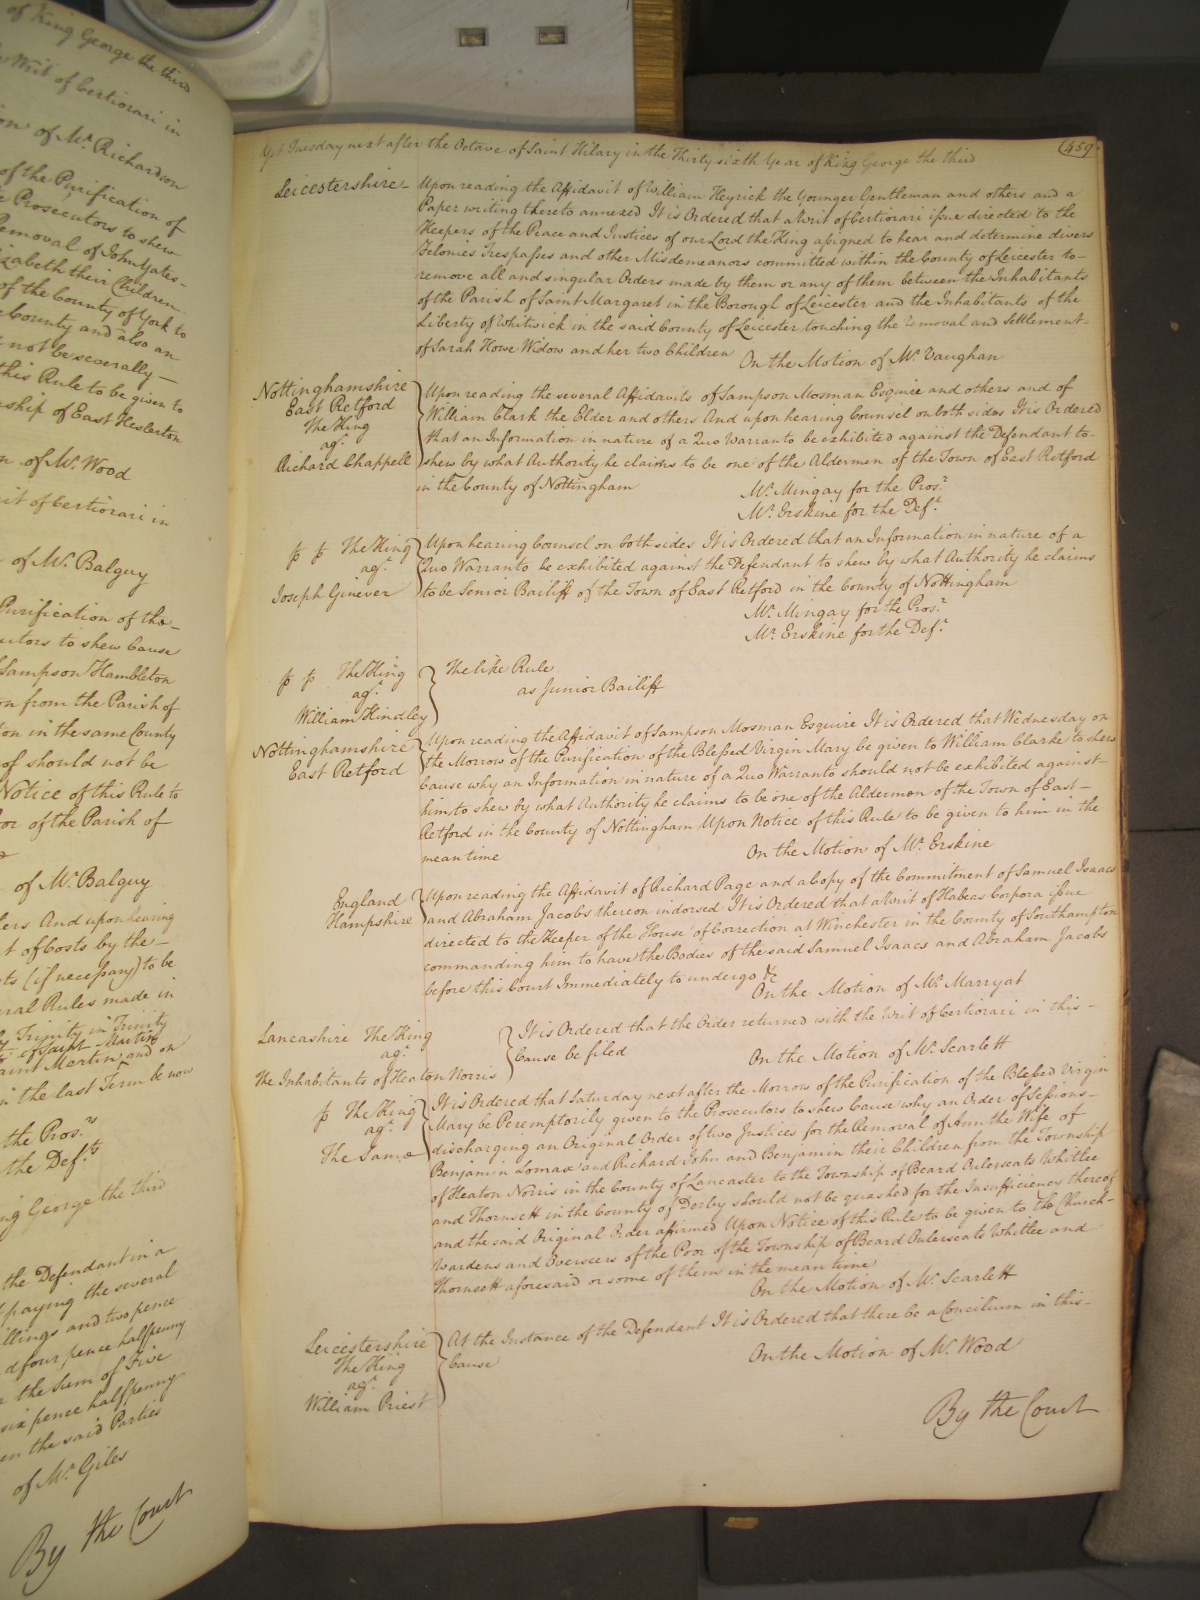 of King George the third
Writ of Certiorari in
on of Mr. Richardson
of the Purification of
e Prosecutors to shew
Removal of John Yates-
izabeth their Children
of the County of York to
County and also an
not be severally —
this Rule to be given to
nship of East Heslerton
n of Mr. Wood
rit of Certiorari in
of Mr. Balguy
Purification of the-
cutors to shew Cause
Sampson Hambleton
on from the Parish of
ton in the same County
of should not be
Notice of this Rule to
oor of the Parish of
of Mr. Balguy
ters And upon hearing
t of Costs by the-
sts (if necessary) to be
eral Rules made in
ty Trinity in Trinity
of Saint Martin
aint Martin, and on
in the last Term be now
the Prosrs.
the Defts.
ng George the third
the Defendant in a
paying the several
illings and two pence
d four pence halfpenny
r the Sum of Five
six pence halfpenny
een the said Parties
of Mr. Giles
By the Court
459.
Yet Tuesday next after the Octave of Saint Hilary in the Thirty sixth Year of King George the third
Leicestershire- Upon reading the Affidavit of William Heyrick the Younger Gentleman and others and a
Paper writing thereto annexed It is Ordered that a Writ of Certiorari issue directed to the
Keepers of the Peace and Justices of our Lord the King assigned to hear and determine divers
Felonies Trespasses and other Misdemeanors committed within the County of Leicester to-
remove all and singular Orders made by them or any of them between the Inhabitants
of the Parish of Saint Margaret in the Borough of Leicester and the Inhabitants of the
Liberty of Whitwick in the said County of Leicester touching the removal and Settlement-
of Sarah Howe Widow and her two Children On the Motion of Mr. Vaughan
Nottinghamshire
East Retford
The King
agt.
Richard Chappell
Upon reading the several Affidavits of Sampson Mosman Esquire and others and of
William Clark the Elder and others And upon hearing Counsel on both sides It is Ordered
that an Information in nature of a Quo Warranto be exhibited against the Defendant to-
shew by what Authority he claims to be one of the Aldermen of the Town of East Retford
in the County of Nottingham
Mr. Mingay for the Prosr.
Mr. Erskine for the Deft.
p p The King
agt.
Joseph Ginever
Upon hearing Counsel on both sides It is Ordered that an Information in nature of a
Quo Warranto be exhibited against the Defendant to shew by what Authority he claims
to be Senior Bailiff of the Town of East Retford in the County of Nottingham
Mr. Mingay for the Prosr.
Mr. Erskine for the Deft.
p p The King
agt.
William Hindley
The like Rule
as Junior Bailiff
Nottinghamshire
East Retford
Upon reading the Affidavit of Sampson Mosman Esquire It is Ordered that Wednesday on
the Morrow of the Purification of the Blessed Virgin Mary be given to William Clarke to shew
Cause why an Information in nature of a Quo Warranto should not be exhibited against-
him, to shew by what Authority he claims to be one of the Aldermen of the Town of East-
Retford in the County of Nottingham Upon Notice of this Rule to be given to him in the
mean time
On the Motion of Mr. Erskine
England
Hampshire
Upon reading the Affidavit of Richard Page and a Copy of the Commitment of Samuel Isaacs
and Abraham Jacobs thereon indorsed It is Ordered that a Writ of Habeas Corpora issue
directed to the Keeper of the House of Correction at Winchester in the County of Southampton
commanding him to have the Bodies of the said Samuel Isaacs and Abraham Jacobs
before this Court Immediately to undergo &c
On the Motion of Mr. Marryat
Lancashire The King
agt.
The Inhabitants of Heaton Norris
It is Ordered that the Order returned with the Writ of Certiorari in this-
Cause be filed
On the Motion of Mr. Scarlett
p The King
agt.
The Same
It is Ordered that Saturday next after the Morrow of the Purification of the Blessed Virgin
Mary be Peremptorily given to the Prosecutors to shew Cause why an Order of Sessions-
discharging an Original Order of two Justices for the Removal of Ann the Wife of
Benjamin Lomax and Richard John and Benjamin their Children from the Township
of Heaton Norris in the County of Lancaster to the Township of Beard Outerseats Whitlee
and Thornsett in the County of Derby should not be quashed for the Insufficiency thereof
and the said Original Order affirmed Upon Notice of this Rule to be given to the Church-
wardens and Overseers of the Poor of the Township of Beard Outerseats Whitlee and
Thornsett aforesaid or some of them in the mean time
On the Motion of Mr. Scarlett
Leicestershire
The King
agt.
William Priest
At the Instance of the Defendant It is Ordered that there be a Concilium in this-
Cause
On the Motion of Mr. Wood
By the Court